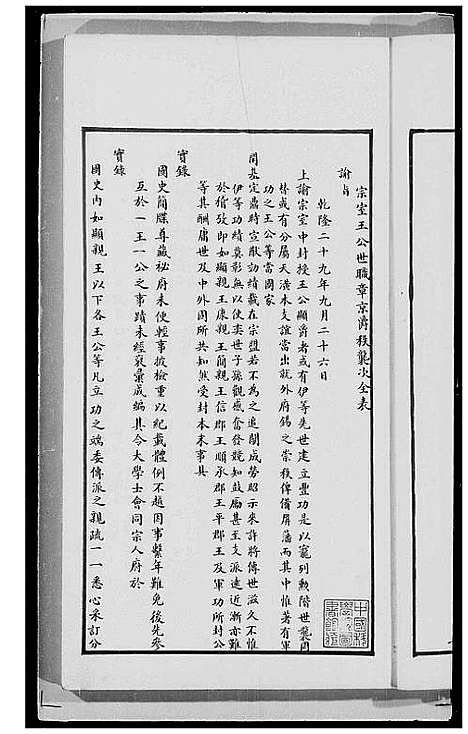 宗室王公世職章京爵秩襲次全表
諭旨
乾隆二十九年九月二十六日
上諭宗室中封授王公顯爵者或有伊等先世建立豐功是以寵列勲階世襲罔
替或有分屬天潢本支誼當出就外府錫之崇秩俾備屏藩而其中惟著有軍
功之王公等當國家
開基定鼎時宣猷効績載在宗盟若不為之追闡成勞昭示來許將傳世滋久不惟
伊等功績莫彰無以使奕世子孫觀感奮發競知鼓勵甚至支派遠近漸亦難
於稽攷即如顯親王康親王簡親王信郡王順承郡王平郡王及軍功所封公
等其酬庸世及中外固所共知然受封本末事具
實錄
國史簡牒尊藏祕府未便輕事披檢重以紀載體例不越因事繫年難免後先參
互於一王一公之事蹟未經裒彙成編其令大學士會同宗人府於
實錄
國史內如顯親王以下各王公等凡立功之端委傳派之親疏一一悉心采訂分
中國科學院圖書館藏